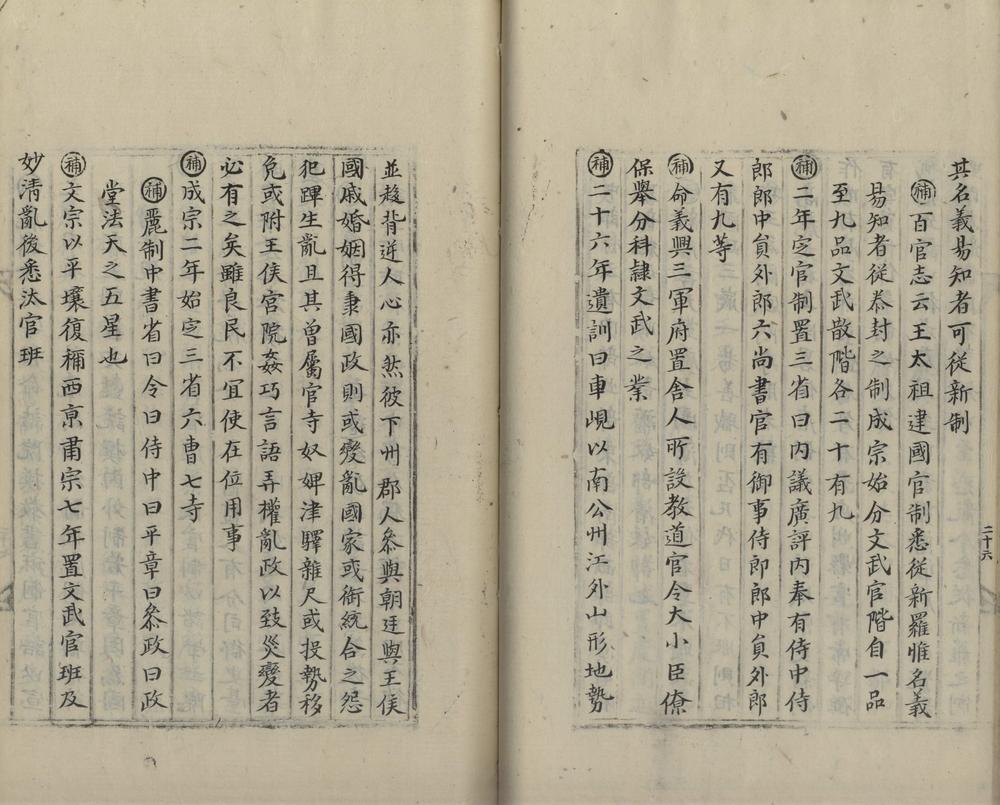 其名義易知者可從新制
㊢百官志云王太祖建國官制悉從新羅惟名義
易知者從泰封之制成宗始分文武官階自一品
至九品文武散階各二十有九
㊢二年定官制置三省曰内議廣評内奉有侍中侍
郎郎中員外郎六尚書官有御事侍郎郎中員外郎
又有九等
㊢命義興三軍府置舎人所設教道官令大小臣僚
保舉分科隷文武之業
㊢二十六年遺訓曰車峴以南公州江外山形地勢
二十六
並趍背逆人心亦然彼下州郡人叅與朝廷與王侯
國戚婚姻得秉國政則或變亂國家或銜統合之怨
犯蹕生亂且其曽屬官寺奴婢津驛雜尺或投勢移
免或附王侯宮院姦巧言語弄權亂政以致災變者
必有之矣雖良民不宜使在位用事
㊢成宗二年始定三省六曹七寺
㊢麗制中書省曰令曰侍中曰平章曰叅政曰政
堂法天之五星也
㊢文宗以平壤復稱西京肅宗七年置文武官班及
妙清亂後悉汰官班